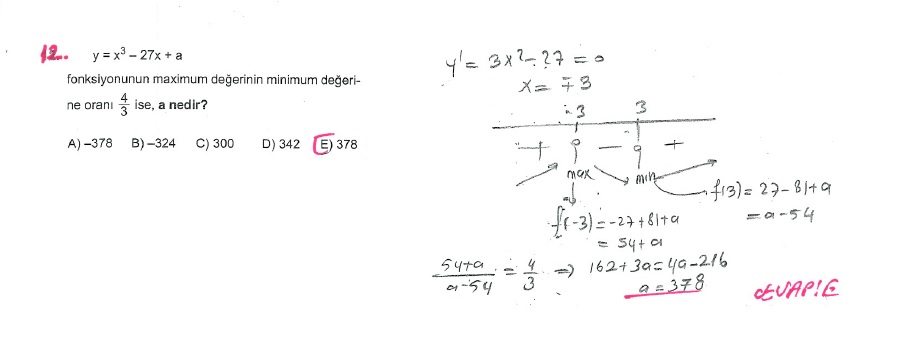 12.. y = x³ – 27x + a
fonksiyonunun maximum değerinin minimum değeri-
ne oranı 4/3 ise, a nedir?
A) –378 B) –324 C) 300 D) 342 E) 378
y' = 3x² - 27 = 0
x = ∓3
-3 3
+ 0 – 0 +
max min
f(3) = 27 – 81 + a
= a - 54
f(-3) = -27 + 81 + a
= 54 + a
54+a / a-54 = 4/3 ⇒ 162 + 3a = 4a – 216
a = 378
CEVAP: E